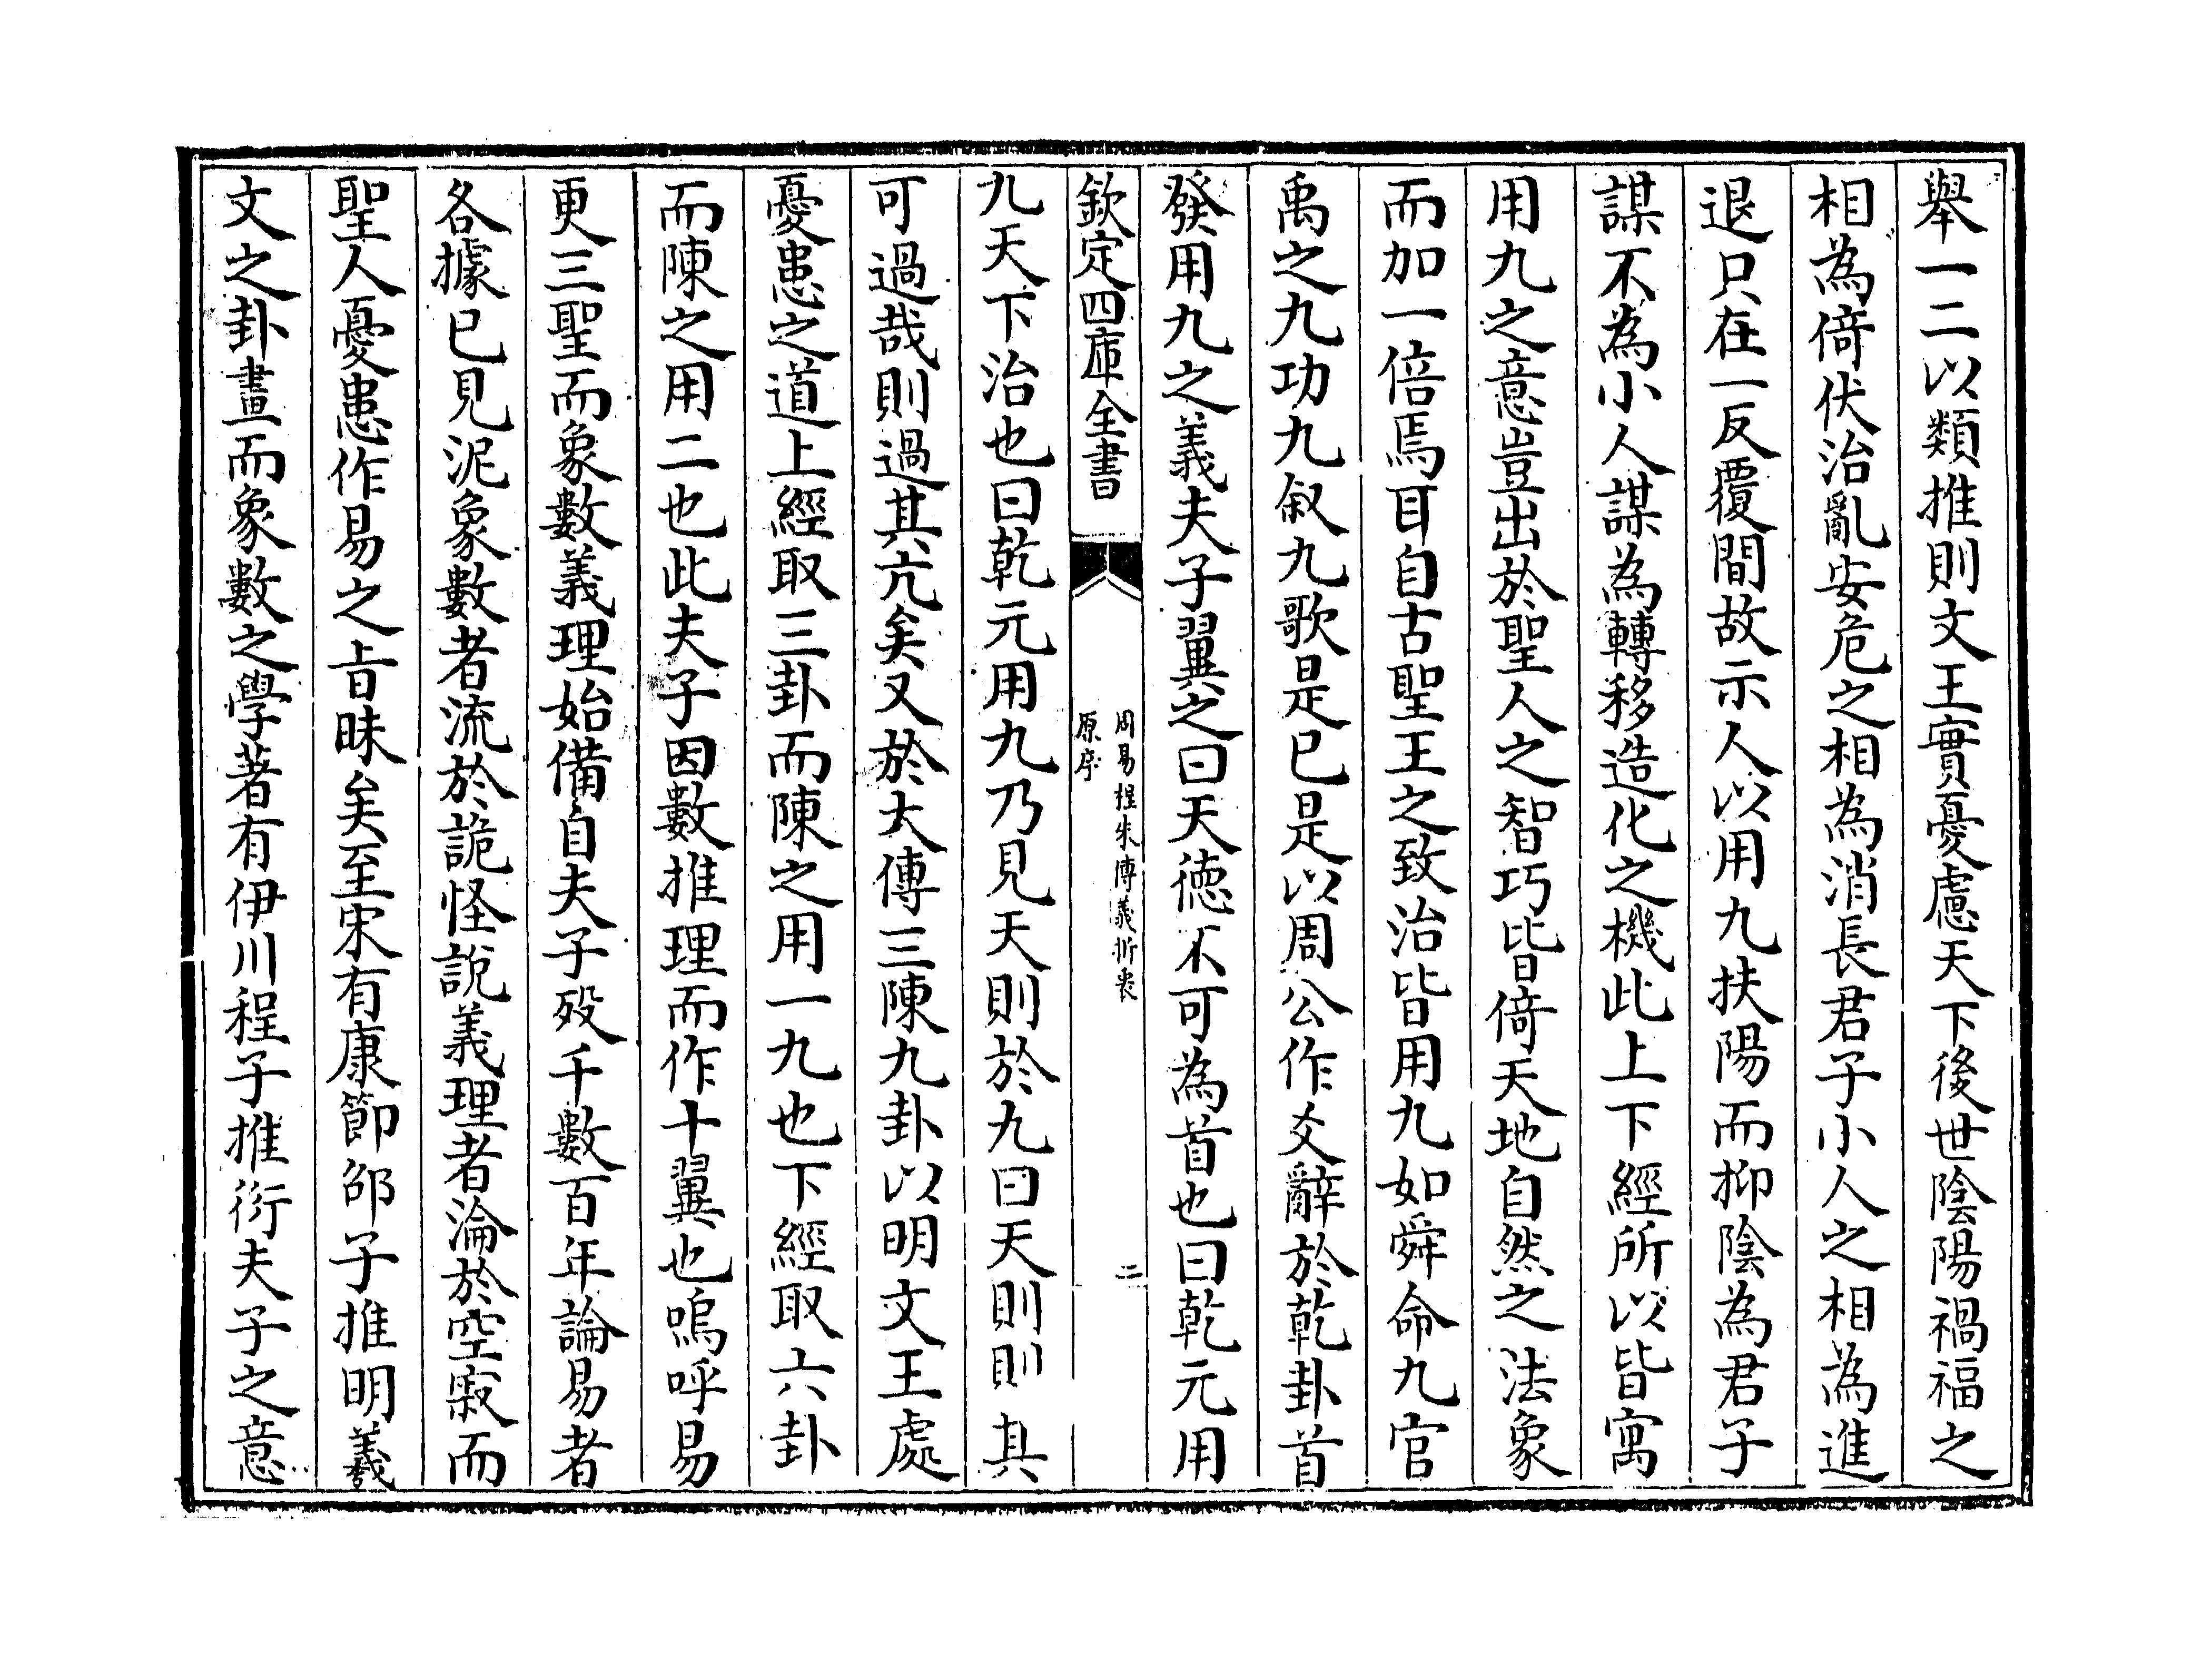 舉一二以類推則文王實憂慮天下後世陰陽禍福之
相為倚伏治亂安危之相為消長君子小人之相為進
退只在一反覆間故示人以用九扶陽而抑陰為君子
謀不為小人謀為轉移造化之機此上下經所以皆寓
用九之意豈出於聖人之智巧皆倚天地自然之法象
而加一倍焉耳自古聖王之致治皆用九如舜命九官
禹之九功九叙九歌是已是以周公作爻辭於乾卦首
發用九之義夫子翼之曰天德不可為首也曰乾元用
欽定四庫全書
周易程朱傳義折衷
原序
二
九天下治也曰乾元用九乃見天則於九曰天則則其
可過哉則過其亢矣又於大傳三陳九卦以明文王處
憂患之道上經取三卦而陳之用一九也下經取六卦
而陳之用二也此夫子因數推理而作十翼也嗚呼易
更三聖而象數義理始備自夫子歿千數百年論易者
各據已見泥象數者流於詭怪說義理者淪於空寂而
聖人憂患作易之旨昧矣至宋有康節邵子推明羲
文之卦畫而象數之學著有伊川程子推衍夫子之意